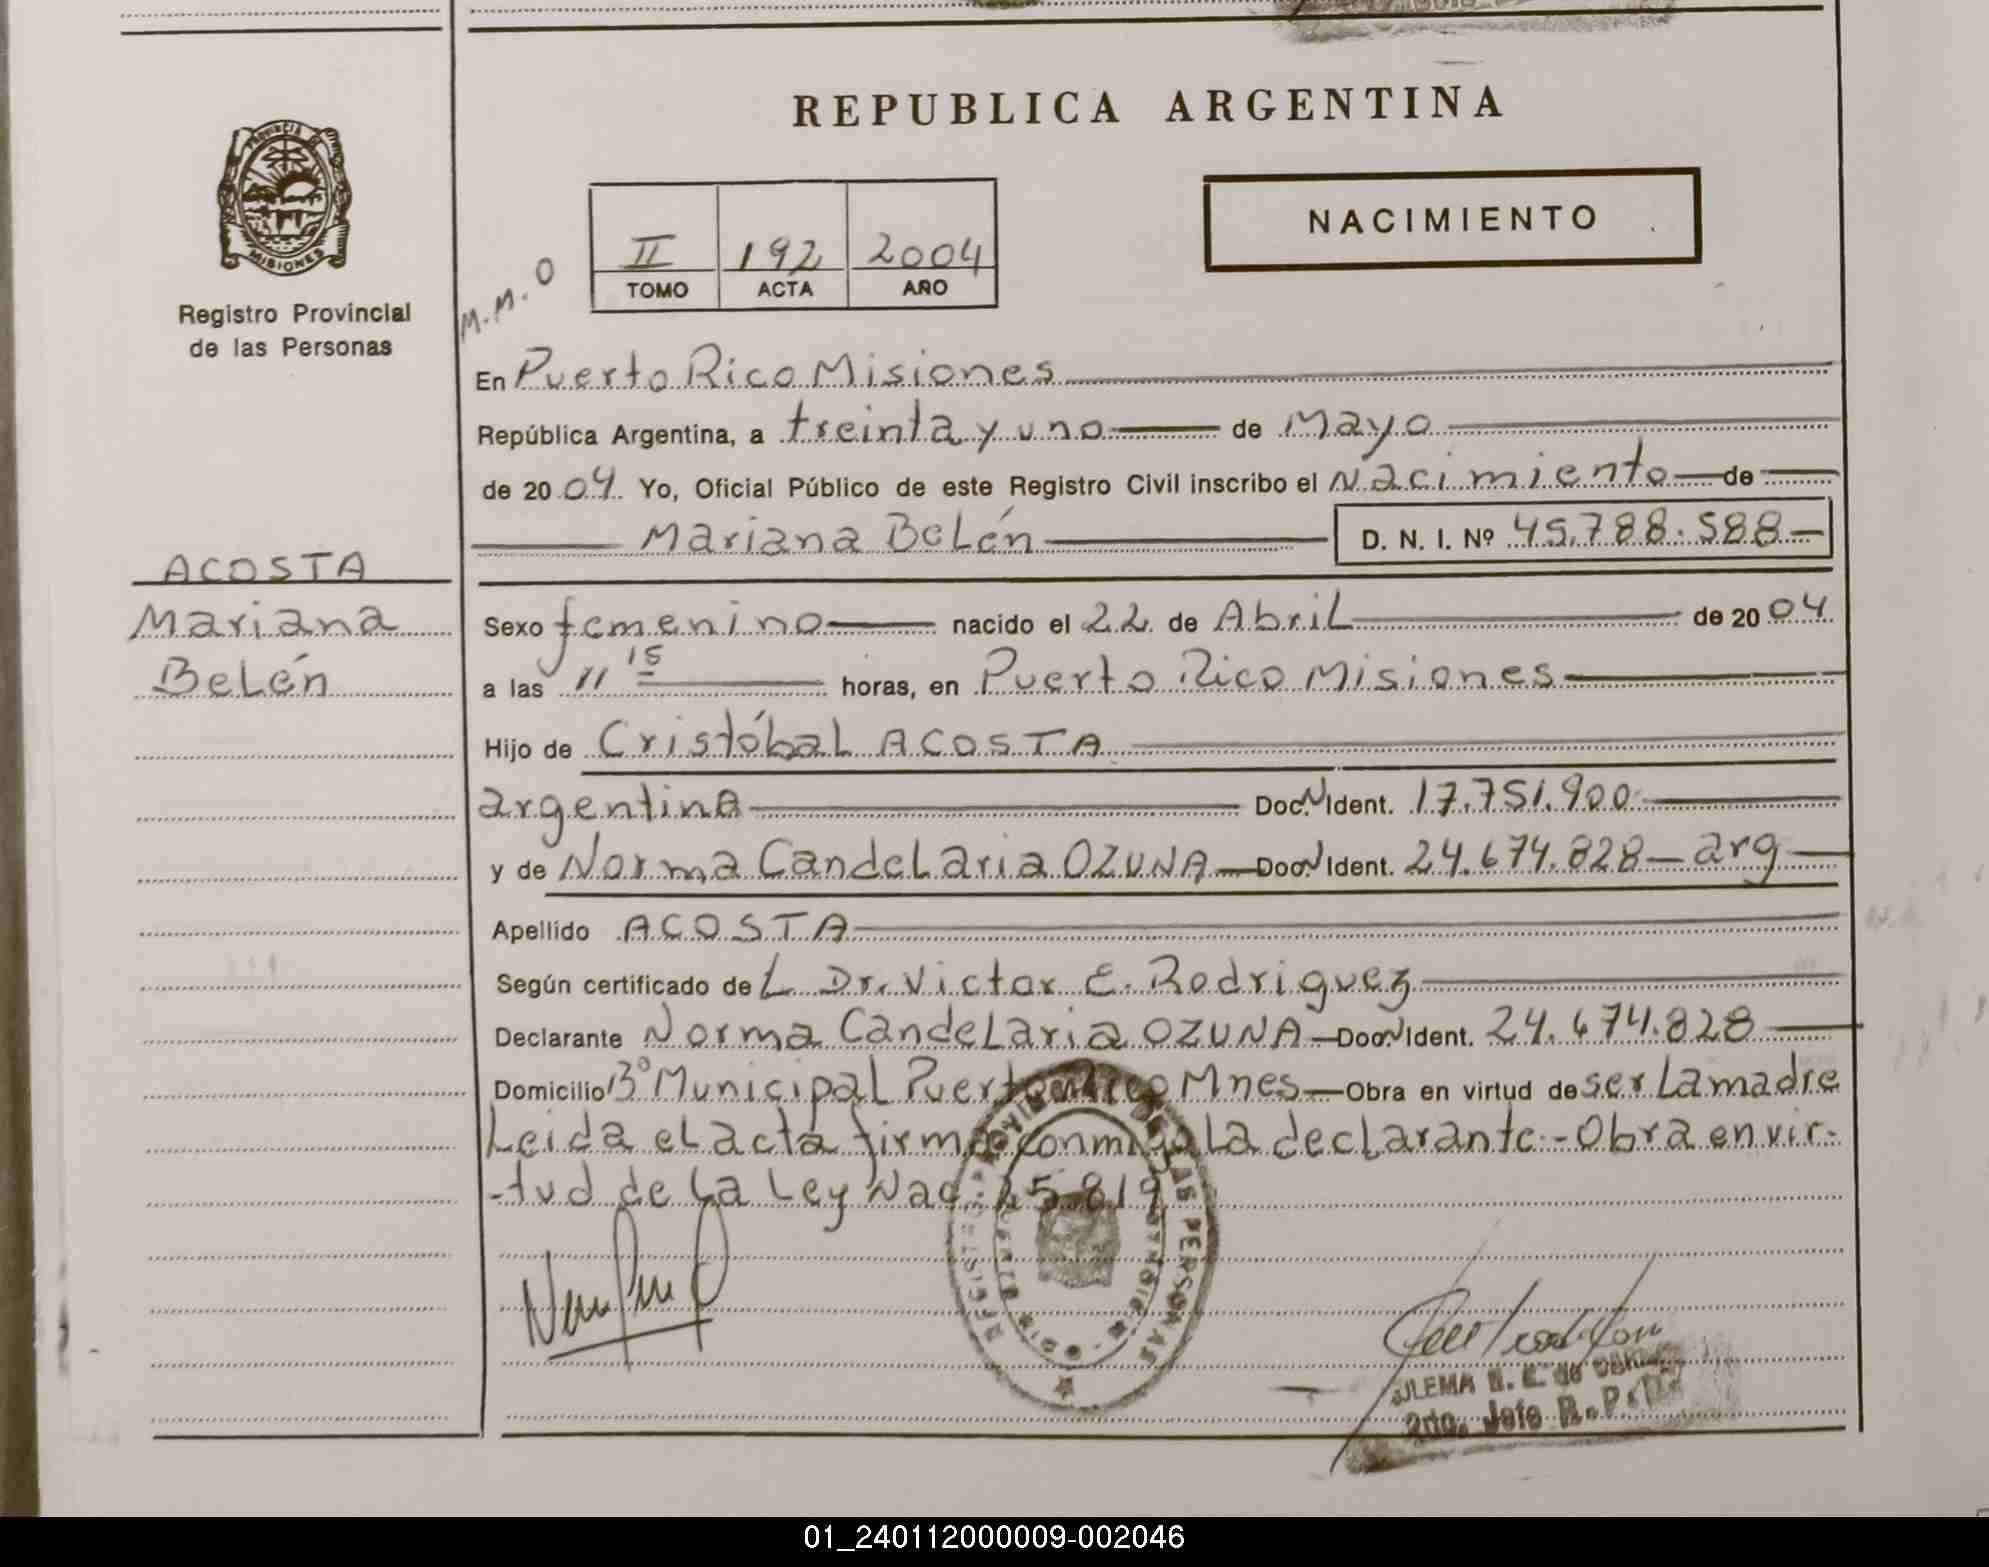 REPUBLICA ARGENTINA
PROVINCIA
MISIONES
Registro Provincial
de las Personas
II 192 2004
TOMO ACTA AÑO
NACIMIENTO
M.M.O
En Puerto Rico Misiones
República Argentina, a treinta y uno de Mayo
de 2004 Yo, Oficial Público de este Registro Civil inscribo el Nacimiento de
Mariana Belén D. N. I. Nº 45.788.588
ACOSTA
Mariana
Belén
Sexo femenino nacido el 22 de Abril de 2004
a las 11 15 horas, en Puerto Rico Misiones
Hijo de Cristóbal ACOSTA
argentina Doc.N Ident. 17.751.900
y de Norma Candelaria OZUNA Doc.N Ident. 24.674.828 arg
Apellido ACOSTA
Según certificado de L Dr. Victor E. Rodriguez
Declarante Norma Candelaria OZUNA Doc.N Ident. 24.674.828
Domicilio Bº Municipal Puerto Rico Mnes Obra en virtud de ser La madre
Leida el acta firma conmigo La declarante - Obra en vir-
-tud de La Ley Nac. 25.819
DE LAS PERSONAS
2do. Jefe R.P.
01_240112000009-002046